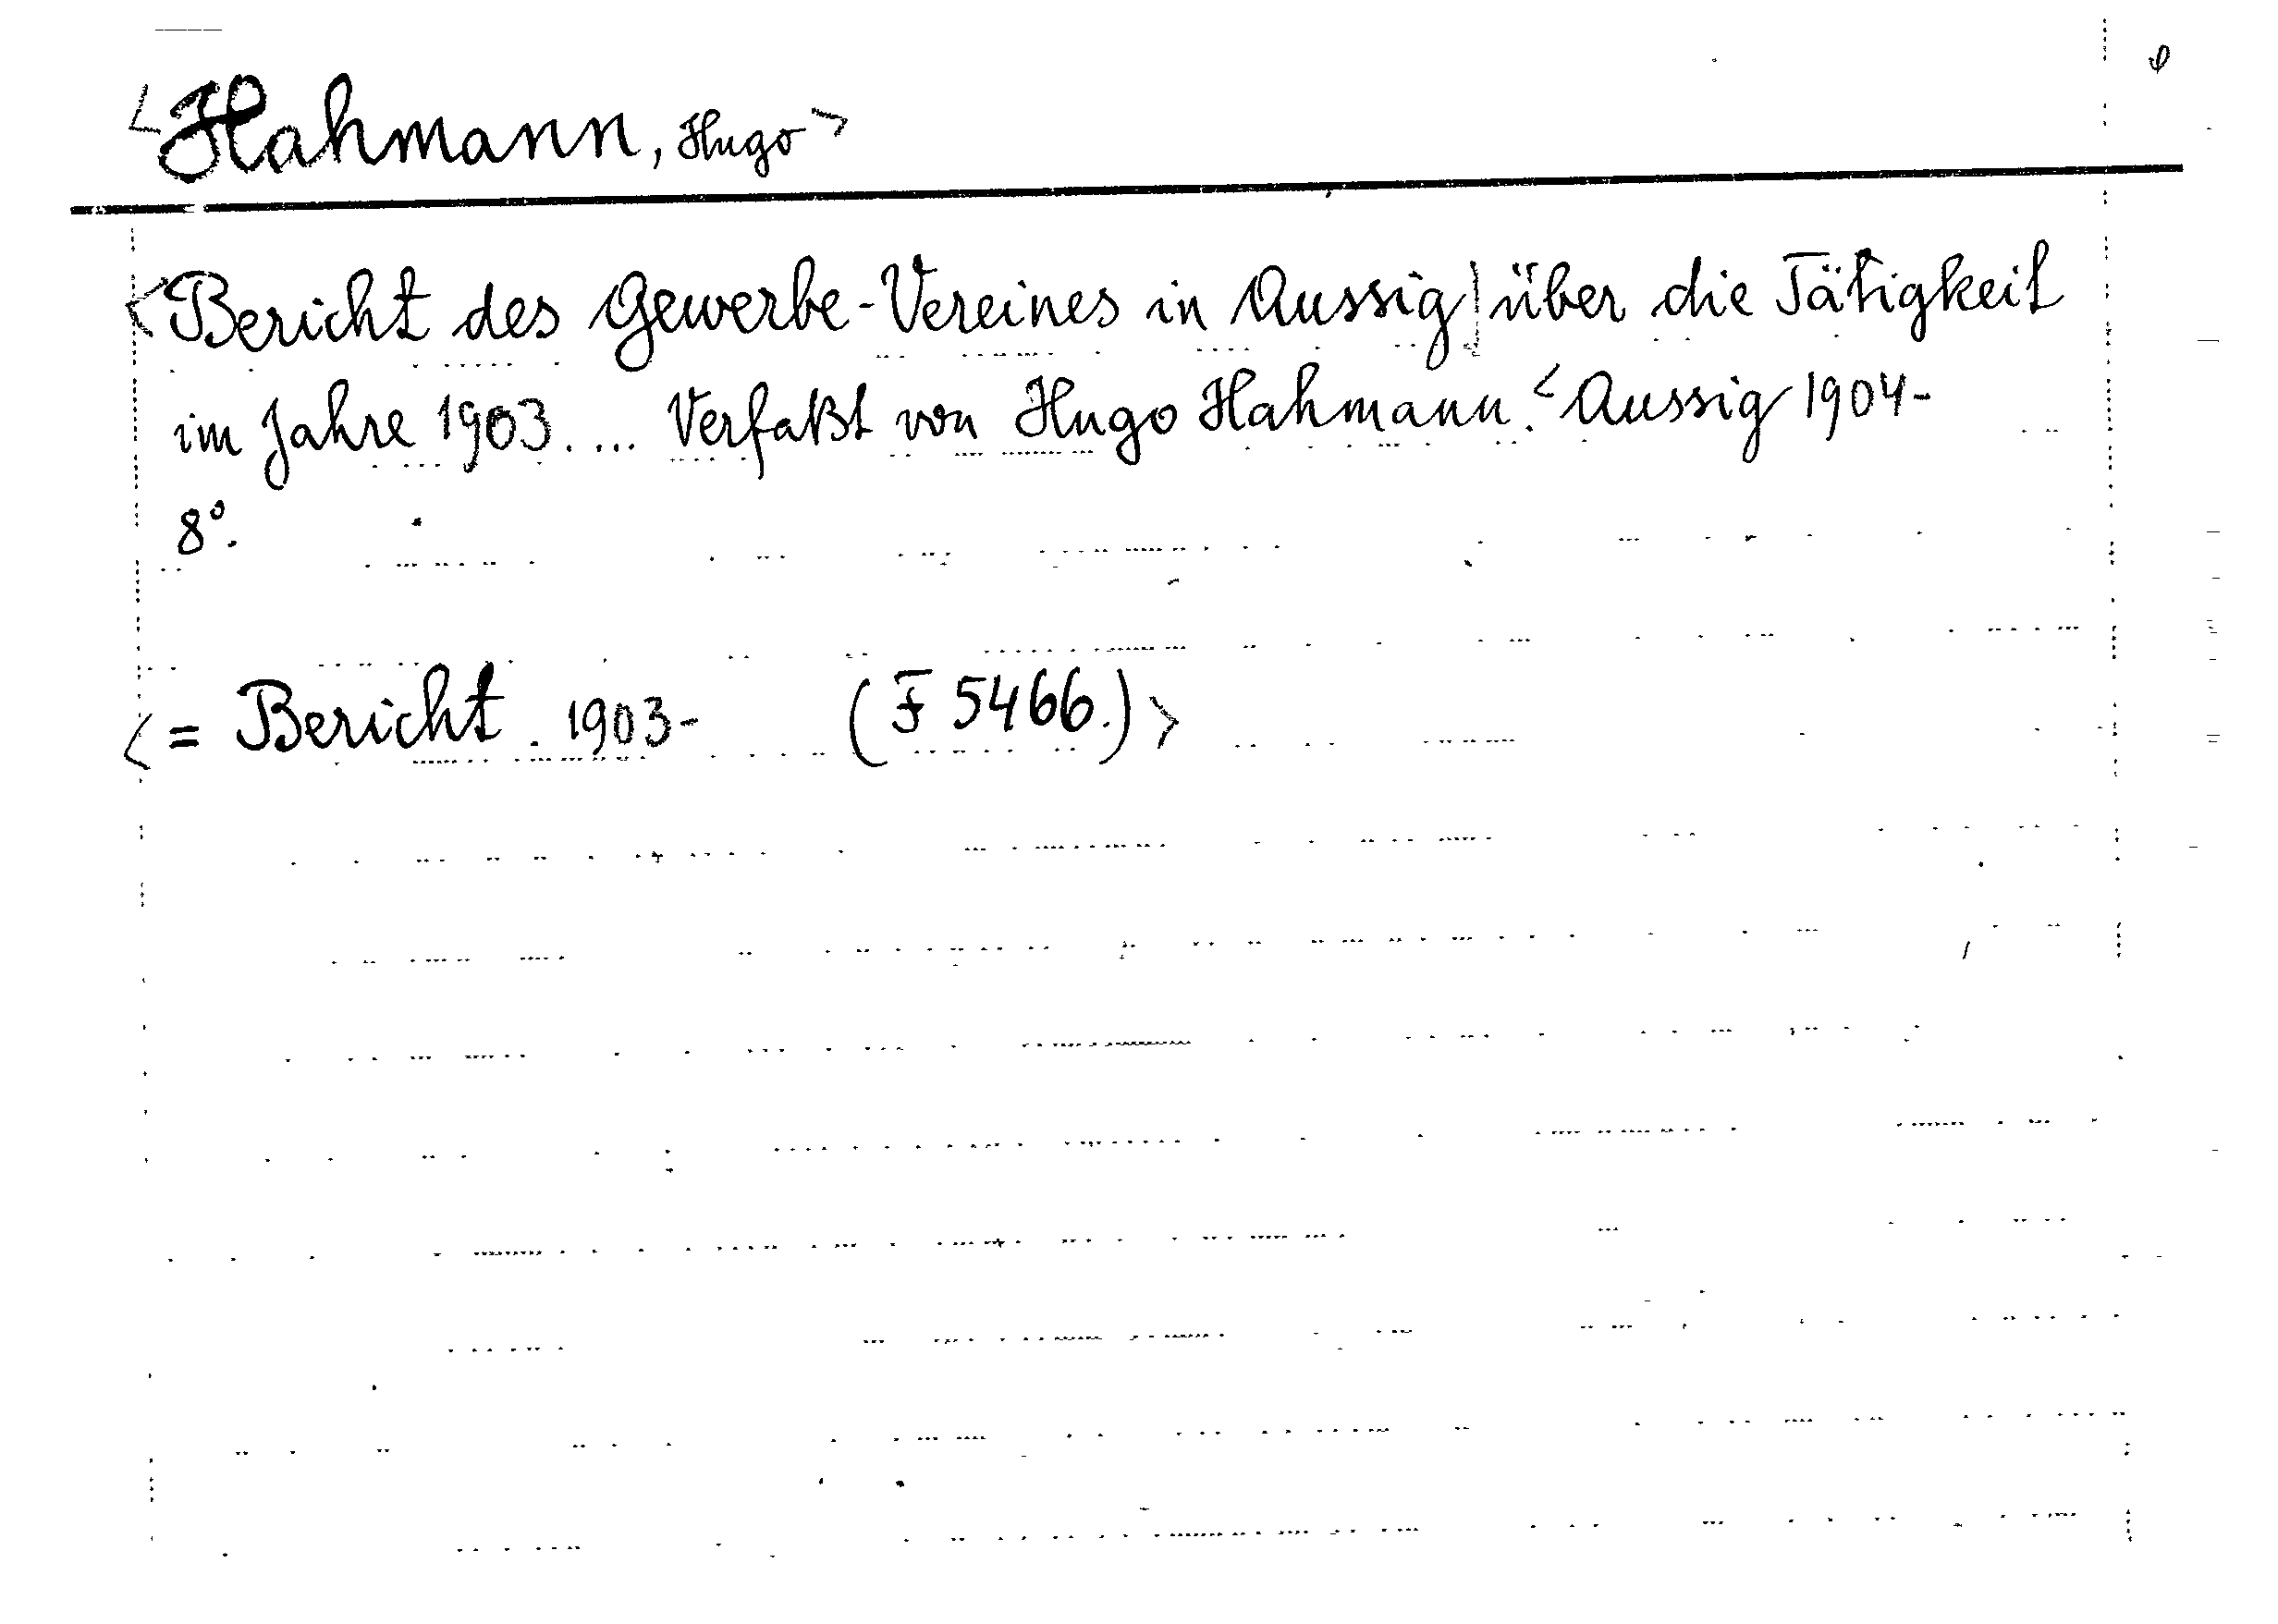 <Hahmann, Hugo>
<Bericht des Gewerbe-Vereines in Aussig| über die Tätigkeit
im Jahre 1903. ... Verfaßt von Hugo Hahmann.< Aussig 1904-
8°.
<= Bericht. 1903- (F 5466.)>